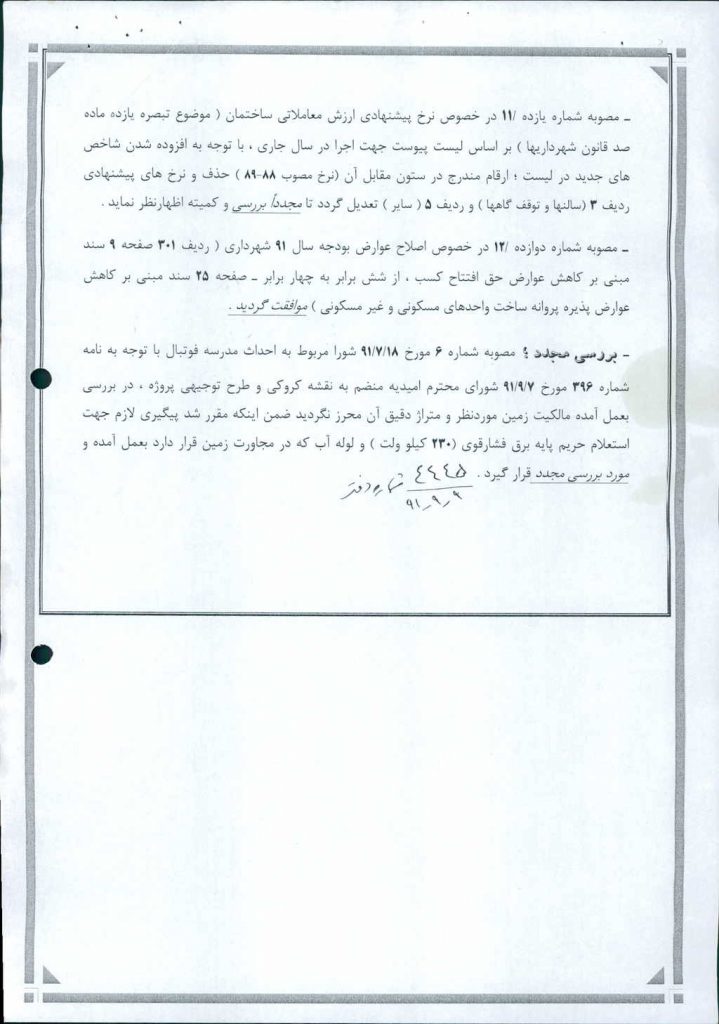 ـ مصوبه شماره یازده /۱۱ در خصوص نرخ پیشنهادی ارزش معاملاتی ساختمان ( موضوع تبصره یازده ماده
صد قانون شهرداریها ) بر اساس لیست پیوست جهت اجرا در سال جاری ، با توجه به افزوده شدن شاخص
های جدید در لیست ؛ ارقام مندرج در ستون مقابل آن (نرخ مصوب ۸۸-۸۹ ) حذف و نرخ های پیشنهادی
ردیف ۳ (سالنها و توقف گاهها ) و ردیف ۵ ( سایر ) تعدیل گردد تا مجدداً بررسی و کمیته اظهارنظر نماید .
ـ مصوبه شماره دوازده /۱۲ در خصوص اصلاح عوارض بودجه سال ۹۱ شهرداری ( ردیف ۳۰۱ صفحه ۹ سند
مبنی بر کاهش عوارض حق افتتاح کسب ، از شش برابر به چهار برابر ـ صفحه ۲۵ سند مبنی بر کاهش
عوارض پذیره پروانه ساخت واحدهای مسکونی و غیر مسکونی ) موافقت گردید .
ـ بررسی مجدد ؛ مصوبه شماره ۶ مورخ ۹۱/۷/۱۸ شورا مربوط به احداث مدرسه فوتبال با توجه به نامه
شماره ۳۹۶ مورخ ۹۱/۹/۷ شورای محترم امیدیه منضم به نقشه کروکی و طرح توجیهی پروژه ، در بررسی
بعمل آمده مالکیت زمین موردنظر و متراژ دقیق آن محرز نگردید ضمن اینکه مقرر شد پیگیری لازم جهت
استعلام حریم پایه برق فشارقوی (۲۳۰ کیلو ولت ) و لوله آب که در مجاورت زمین قرار دارد بعمل آمده و
مورد بررسی مجدد قرار گیرد .
شماره دفتر ۴۴۴۵
۹۱_۹_۹